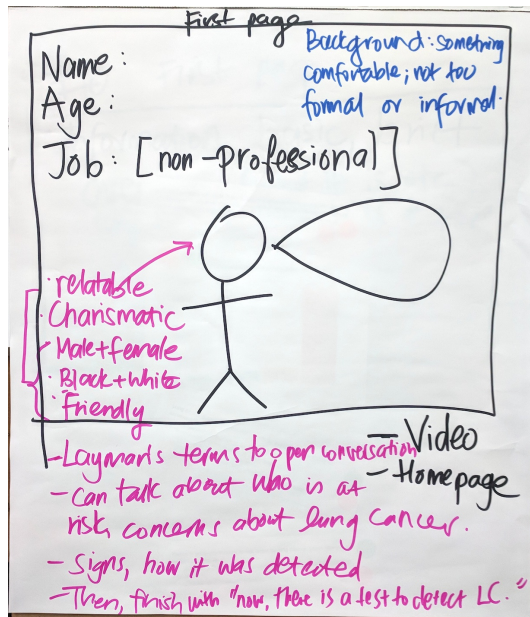 First page
Name:
Age:
Job: [non-professional]
Background: something
comfortable; not too
formal or informal.
· relatable
· Charismatic
· Male+female
· Black+white
· Friendly
- Layman's terms to open conversation
- Can talk about who is at
risk concerns about lung cancer.
- Signs, how it was detected
- Then, finish with "now, there is a test to detect LC."
- Video
- Homepage